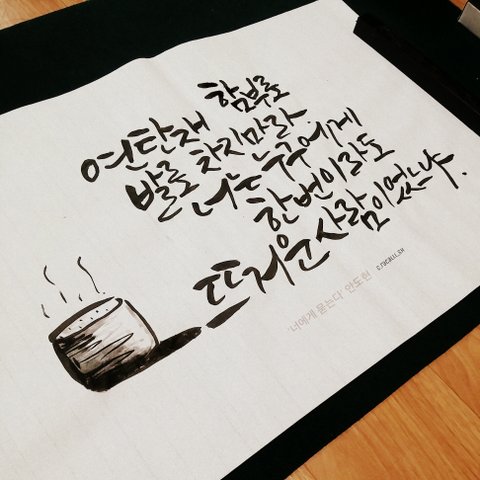 연탄재 함부로
발로 차지마라
너는 누구에게
한번이라도
뜨거운 사람이었느냐.
'너에게 묻는다' 안도현